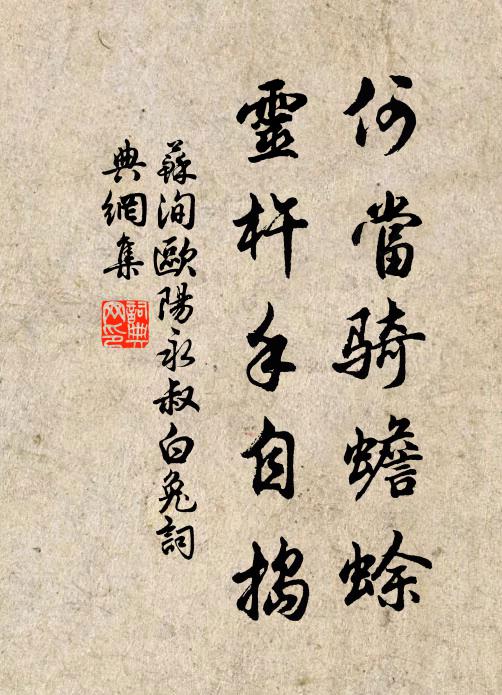 何當騎蟾蜍
靈杵手自搗
蘇洵歐陽永叔白兔詞
典網集
詞典
网印